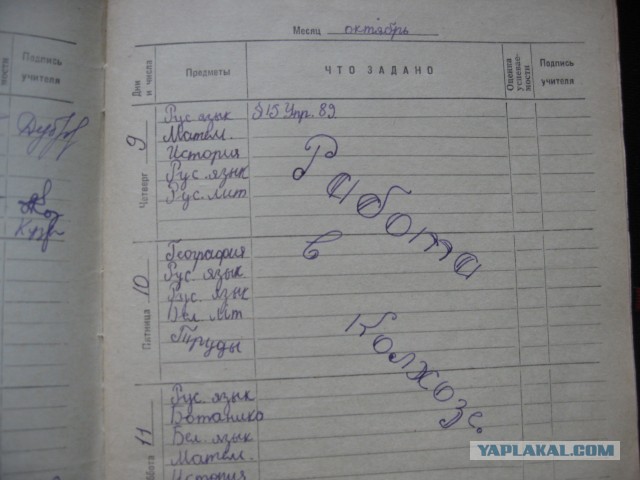 Месяц октябрь
ности
Подпись учителя
Дни и числа
Предметы
ЧТО ЗАДАНО
Оценка успеваемости
Подпись учителя
Четверг 9
Рус. язык §15 Упр. 89
Матем.
История
Рус. язык
Рус. лит
Работа
в
Колхозе.
Пятница 10
География
Рус. язык
Рус. язык
Бел. лит
Труды
11
Рус. язык
Ботанико
Бел. язык
Матем.
История
YAPLAKAL.COM